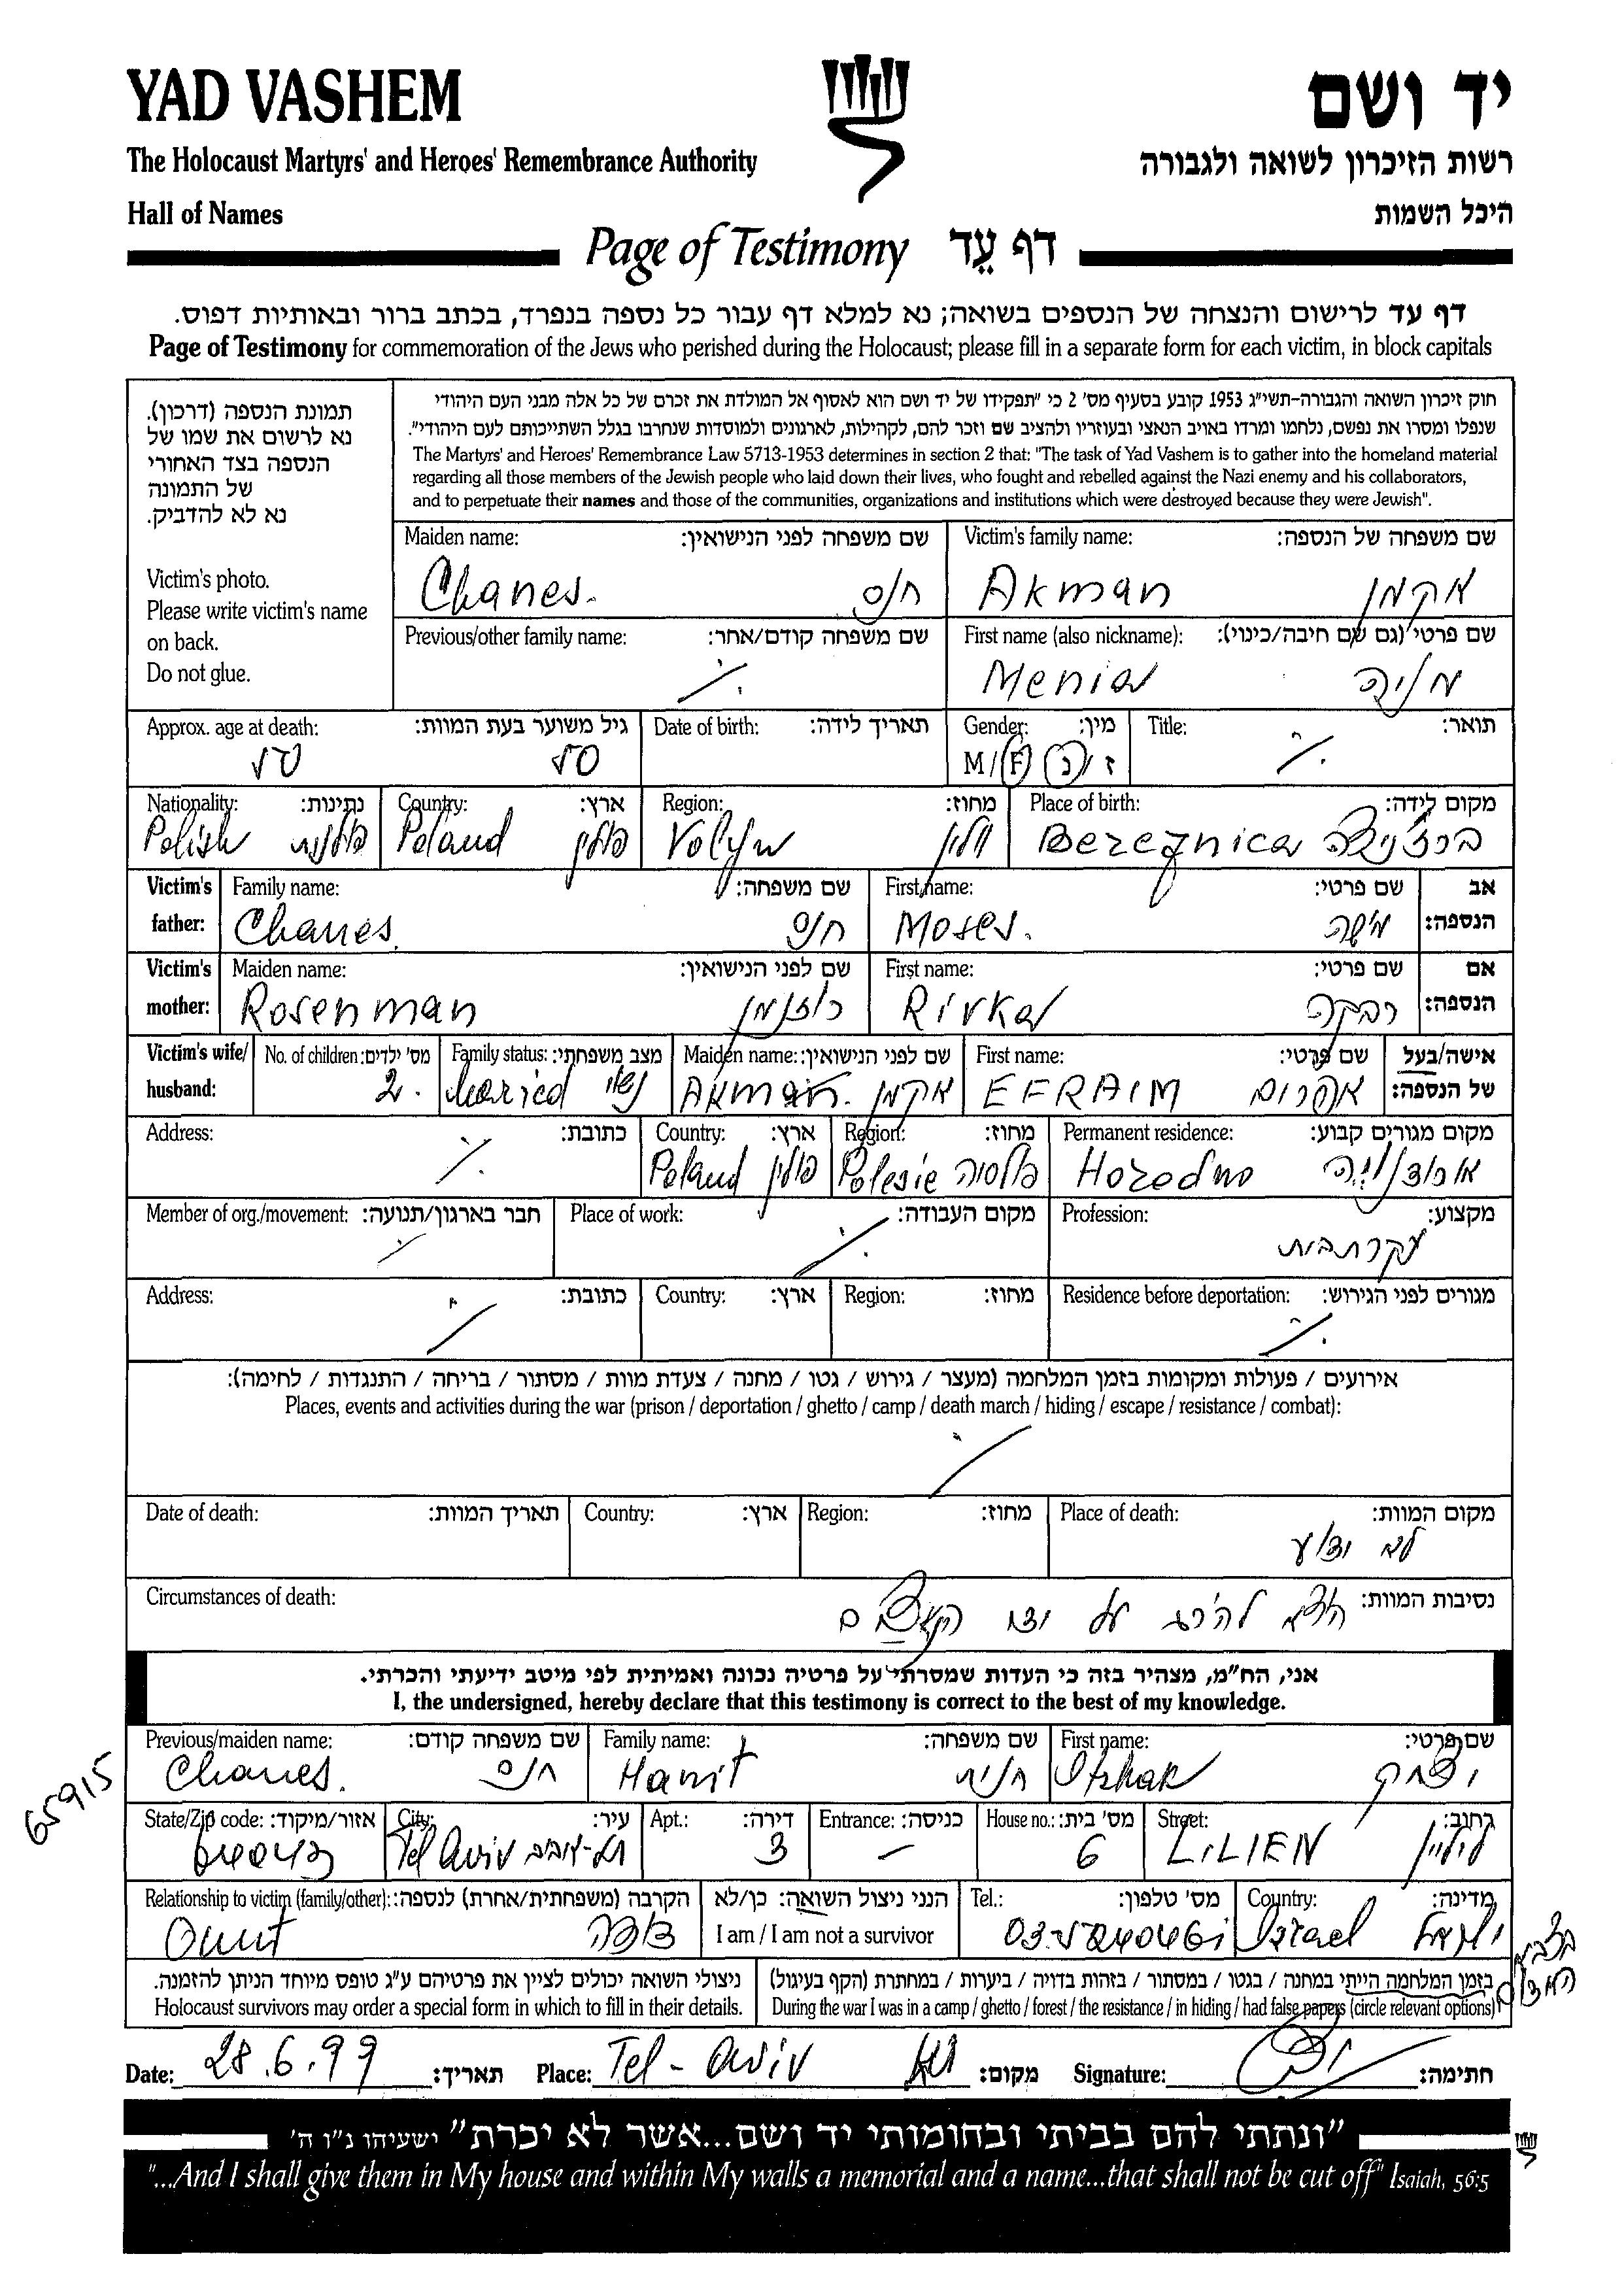 YAD VASHEM
יד ושם
The Holocaust Martyrs' and Heroes' Remembrance Authority
רשות הזיכרון לשואה ולגבורה
Hall of Names
היכל השמות
Page of Testimony דף עֵד
דף עד לרישום והנצחה של הנספים בשואה; נא למלא דף עבור כל נספה בנפרד, בכתב ברור ובאותיות דפוס.
Page of Testimony for commemoration of the Jews who perished during the Holocaust; please fill in a separate form for each victim, in block capitals
תמונת הנספה (דרכון).
נא לרשום את שמו של
הנספה בצד האחורי
של התמונה
נא לא להדביק.
Victim's photo.
Please write victim's name
on back.
Do not glue.
חוק זיכרון השואה והגבורה-תשי"ג 1953 קובע בסעיף מס' 2 כי "תפקידו של יד ושם הוא לאסוף אל המולדת את זכרם של כל אלה מבני העם היהודי
שנפלו ומסרו את נפשם, נלחמו ומרדו באויב הנאצי ובעוזריו ולהציב שם וזכר להם, לקהילות, לארגונים ולמוסדות שנחרבו בגלל השתייכותם לעם היהודי".
The Martyrs' and Heroes' Remembrance Law 5713-1953 determines in section 2 that: "The task of Yad Vashem is to gather into the homeland material
regarding all those members of the Jewish people who laid down their lives, who fought and rebelled against the Nazi enemy and his collaborators,
and to perpetuate their names and those of the communities, organizations and institutions which were destroyed because they were Jewish".
Maiden name: שם משפחה לפני הנישואין:
Chanes. חנס
Victim's family name: שם משפחה של הנספה:
Akman אקמן
Previous/other family name: שם משפחה קודם/אחר:
First name (also nickname): שם פרטי (גם שם חיבה/כינוי):
Menia מניה
Approx. age at death: גיל משוער בעת המוות:
50 50
Date of birth: תאריך לידה:
Gender: מין:
M/F ז/נ
Title: תואר:
Nationality: נתינות:
Polish פולנית
Country: ארץ:
Poland פולין
Region: מחוז:
Volyn וולין
Place of birth: מקום לידה:
Bereznica ברזניצה
Victim's father:
Family name: שם משפחה:
Chanes. חנס
First name: שם פרטי:
Moses. משה
אב הנספה:
Victim's mother:
Maiden name: שם לפני הנישואין:
Rosenman רוזנמן
First name: שם פרטי:
Rivka רבקה
אם הנספה:
Victim's wife/ husband:
No. of children: מס' ילדים:
2.
Family status: מצב משפחתי:
Maried נשוי
Maiden name: שם לפני הנישואין:
Akman. אקמן
First name: שם פרטי:
EFRAIM אפרים
אישה/בעל של הנספה:
Address: כתובת:
Country: ארץ:
Poland פולין
Region: מחוז:
Polesie פולסיה
Permanent residence: מקום מגורים קבוע:
Horodno
Member of org./movement: חבר בארגון/תנועה:
Place of work: מקום העבודה:
Profession: מקצוע:
עקרת בית
Address: כתובת:
Country: ארץ:
Region: מחוז:
Residence before deportation: מגורים לפני הגירוש:
אירועים / פעולות ומקומות בזמן המלחמה (מעצר / גירוש / גטו / מחנה / צעדת מוות / מסתור / בריחה / התנגדות / לחימה):
Places, events and activities during the war (prison / deportation / ghetto / camp / death march / hiding / escape / resistance / combat):
Date of death: תאריך המוות:
Country: ארץ:
Region: מחוז:
Place of death: מקום המוות:
לא ידוע
Circumstances of death: נסיבות המוות:
הוצא להורג על ידי הנאצים
אני, הח"מ, מצהיר בזה כי העדות שמסרתי על פרטיה נכונה ואמיתית לפי מיטב ידיעתי והכרתי.
I, the undersigned, hereby declare that this testimony is correct to the best of my knowledge.
Previous/maiden name: שם משפחה קודם:
Chanes. חנס
Family name: שם משפחה:
Hanit חנית
First name: שם פרטי:
Itzhak יצחק
65915
State/Zip code: אזור/מיקוד:
City: עיר:
Tel Aviv תל-אביב
Apt.: דירה:
3
Entrance: כניסה:
–
House no.: מס' בית:
6
Street: רחוב:
LILIEN ליליין
Relationship to victim (family/other): הקרבה (משפחתית/אחרת) לנספה:
Ount דודה
הנני ניצול השואה: כן/לא
I am / I am not a survivor
Tel.: מס' טלפון:
Country: מדינה:
Israel ישראל
ניצולי השואה יכולים לציין את פרטיהם ע"ג טופס מיוחד הניתן להזמנה.
Holocaust survivors may order a special form in which to fill in their details.
בזמן המלחמה הייתי במחנה / בגטו / במסתור / בזהות בדויה / ביערות / במחתרת (הקף בעיגול)
During the war I was in a camp / ghetto / forest / the resistance / in hiding / had false papers (circle relevant options)
Date: 28.6.99 תאריך:
Place: Tel-Aviv מקום:
Signature: חתימה:
"ונתתי להם בביתי ובחומותי יד ושם...אשר לא יכרת" ישעיהו נ"ו ה'
"...And I shall give them in My house and within My walls a memorial and a name...that shall not be cut off" Isaiah, 56:5